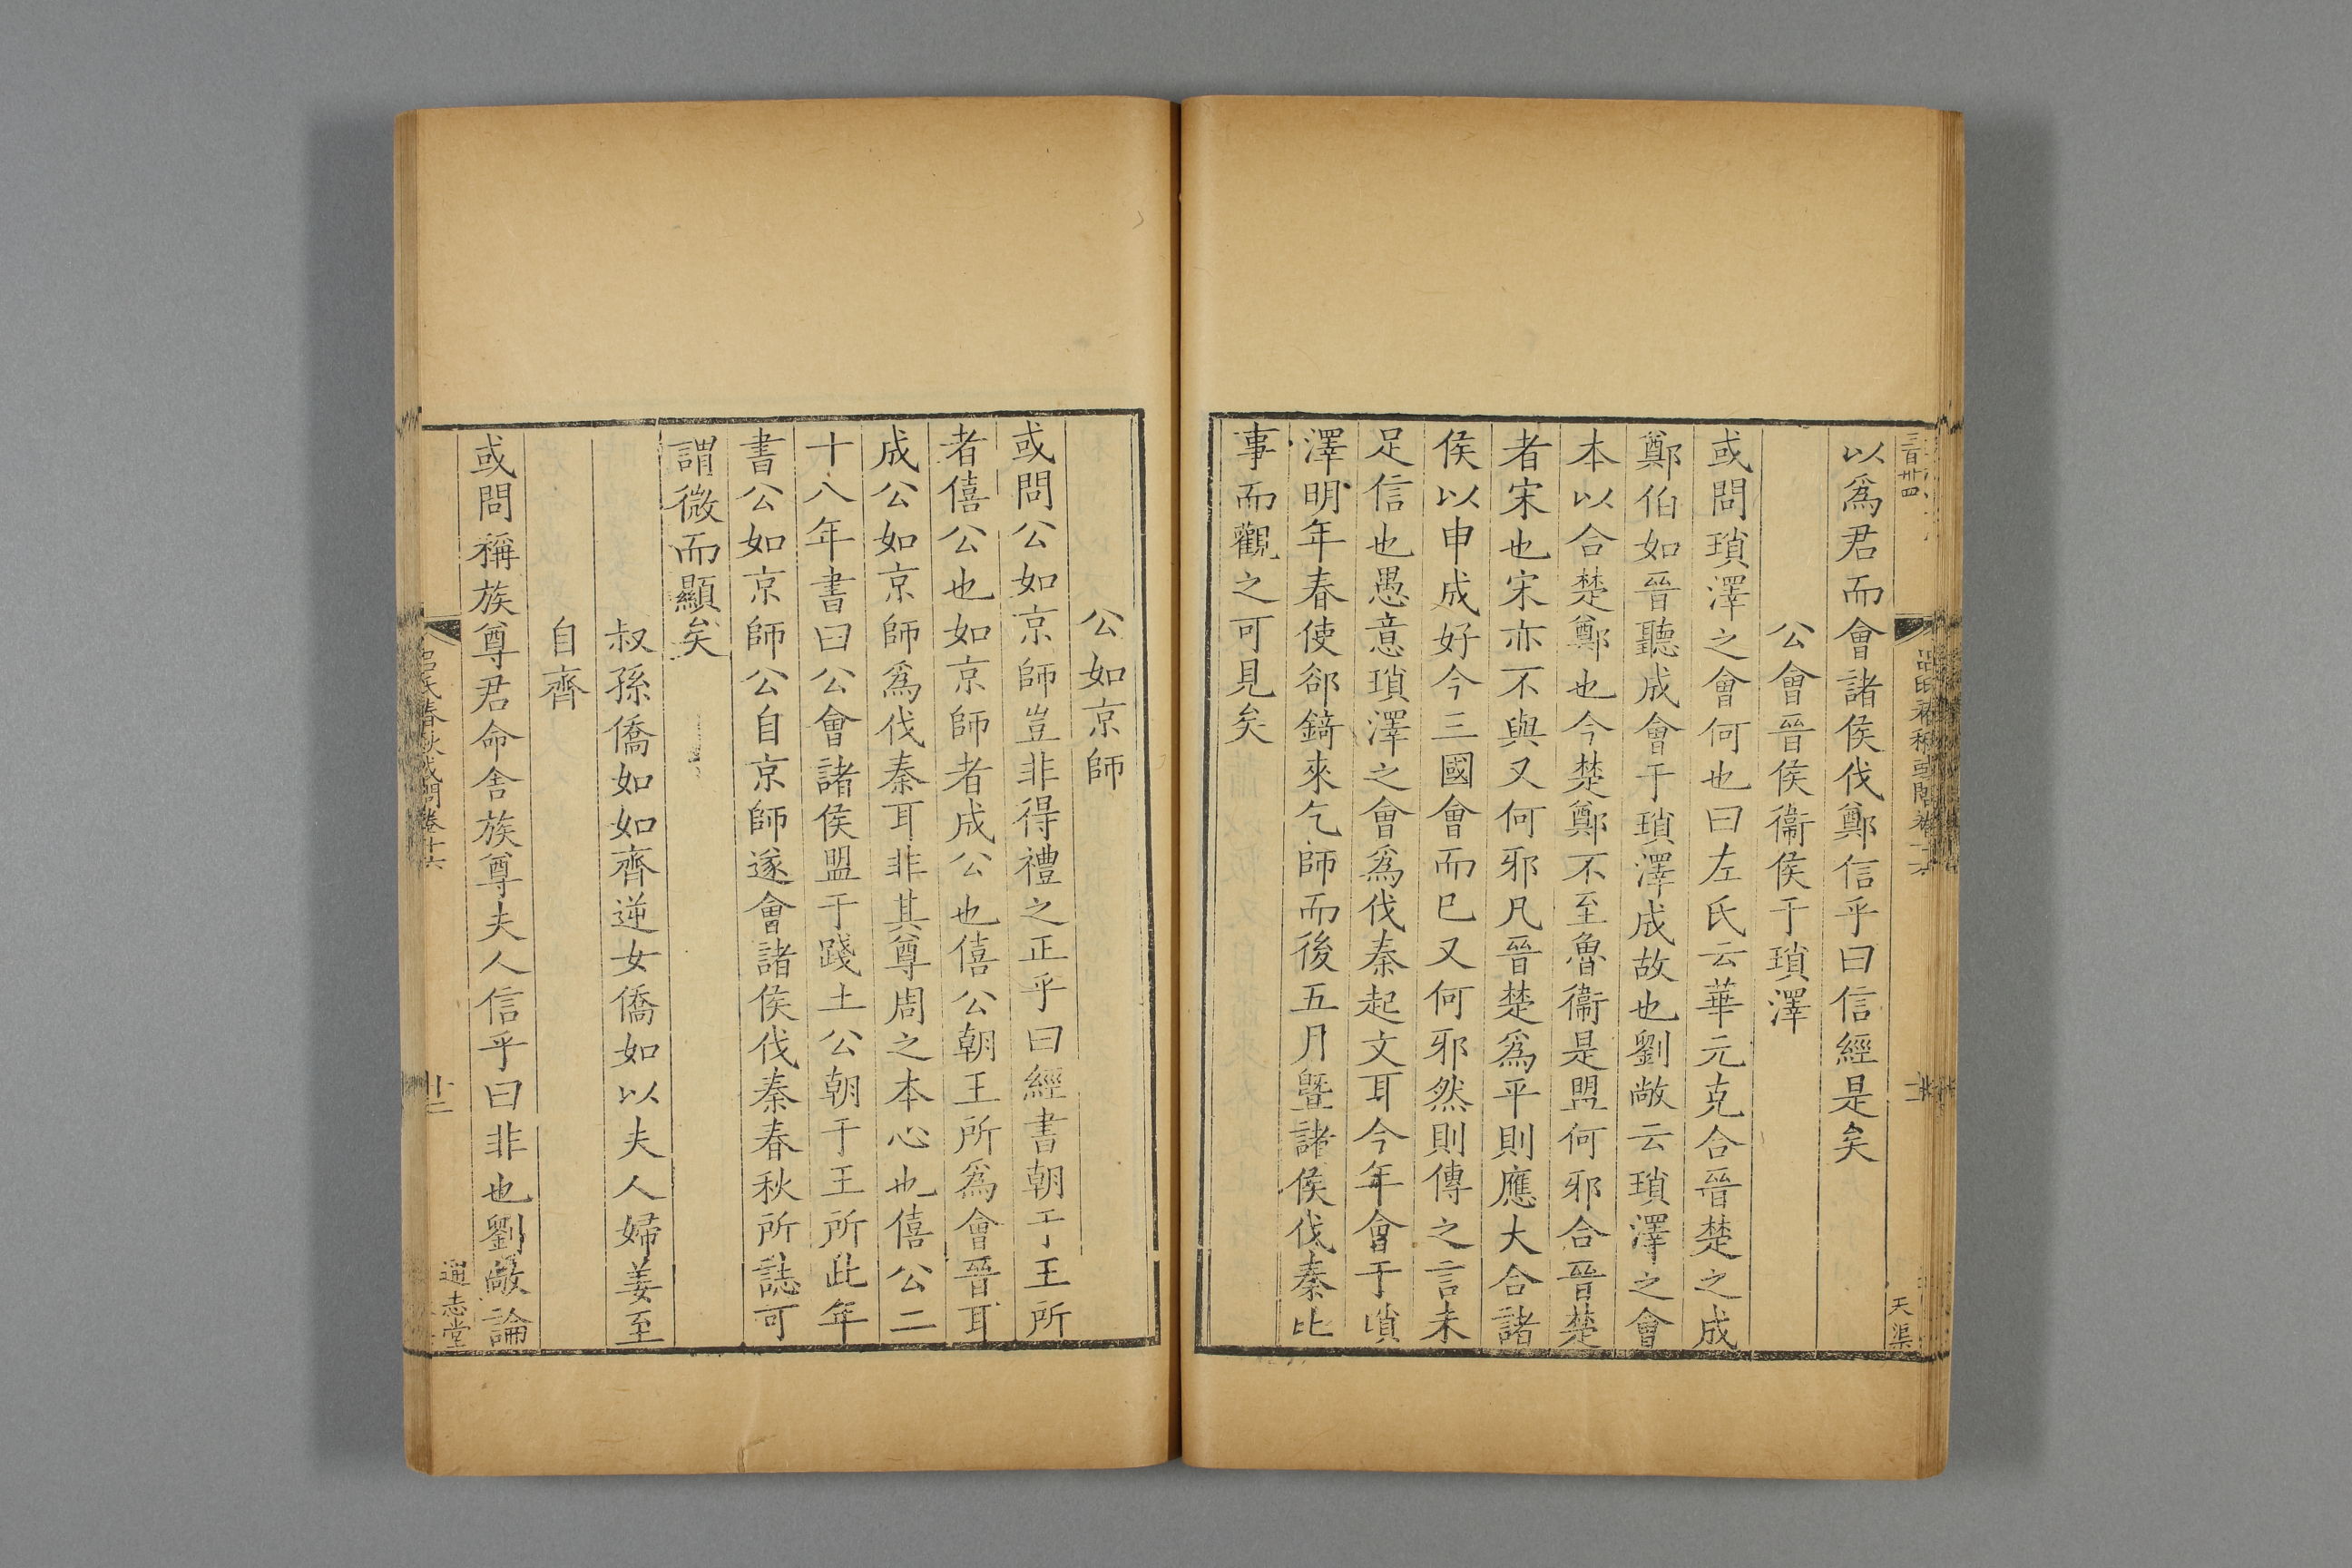 三百卅四
以爲君而會諸侯伐鄭信乎曰信經是矣
公會晉侯衞侯于瑣澤
或問瑣澤之會何也曰左氏云華元克合晉楚之成
鄭伯如晉聽成會于瑣澤成故也劉敞云瑣澤之會
本以合楚鄭也今楚鄭不至魯衞是盟何邪合晉楚
者宋也宋亦不與又何邪凡晉楚爲平則應大合諸
侯以申成好今三國會而巳又何邪然則傳之言未
足信也愚意瑣澤之會爲伐秦起文耳今年會于瑣
澤明年春使郤錡來乞師而後五月曁諸侯伐秦比
事而觀之可見矣
天渠
公如京師
或問公如京師豈非得禮之正乎曰經書朝于王所
者僖公也如京師者成公也僖公朝王所爲會晉耳
成公如京師爲伐秦耳非其尊周之本心也僖公二
十八年書曰公會諸侯盟于踐土公朝于王所此年
書公如京師公自京師遂會諸侯伐秦春秋所誌可
謂微而顯矣
叔孫僑如如齊逆女僑如以夫人婦姜至
自齊
或問稱族尊君命舍族尊夫人信乎曰非也劉敞論
呂氏春秋或問卷十六
廿二
通志堂